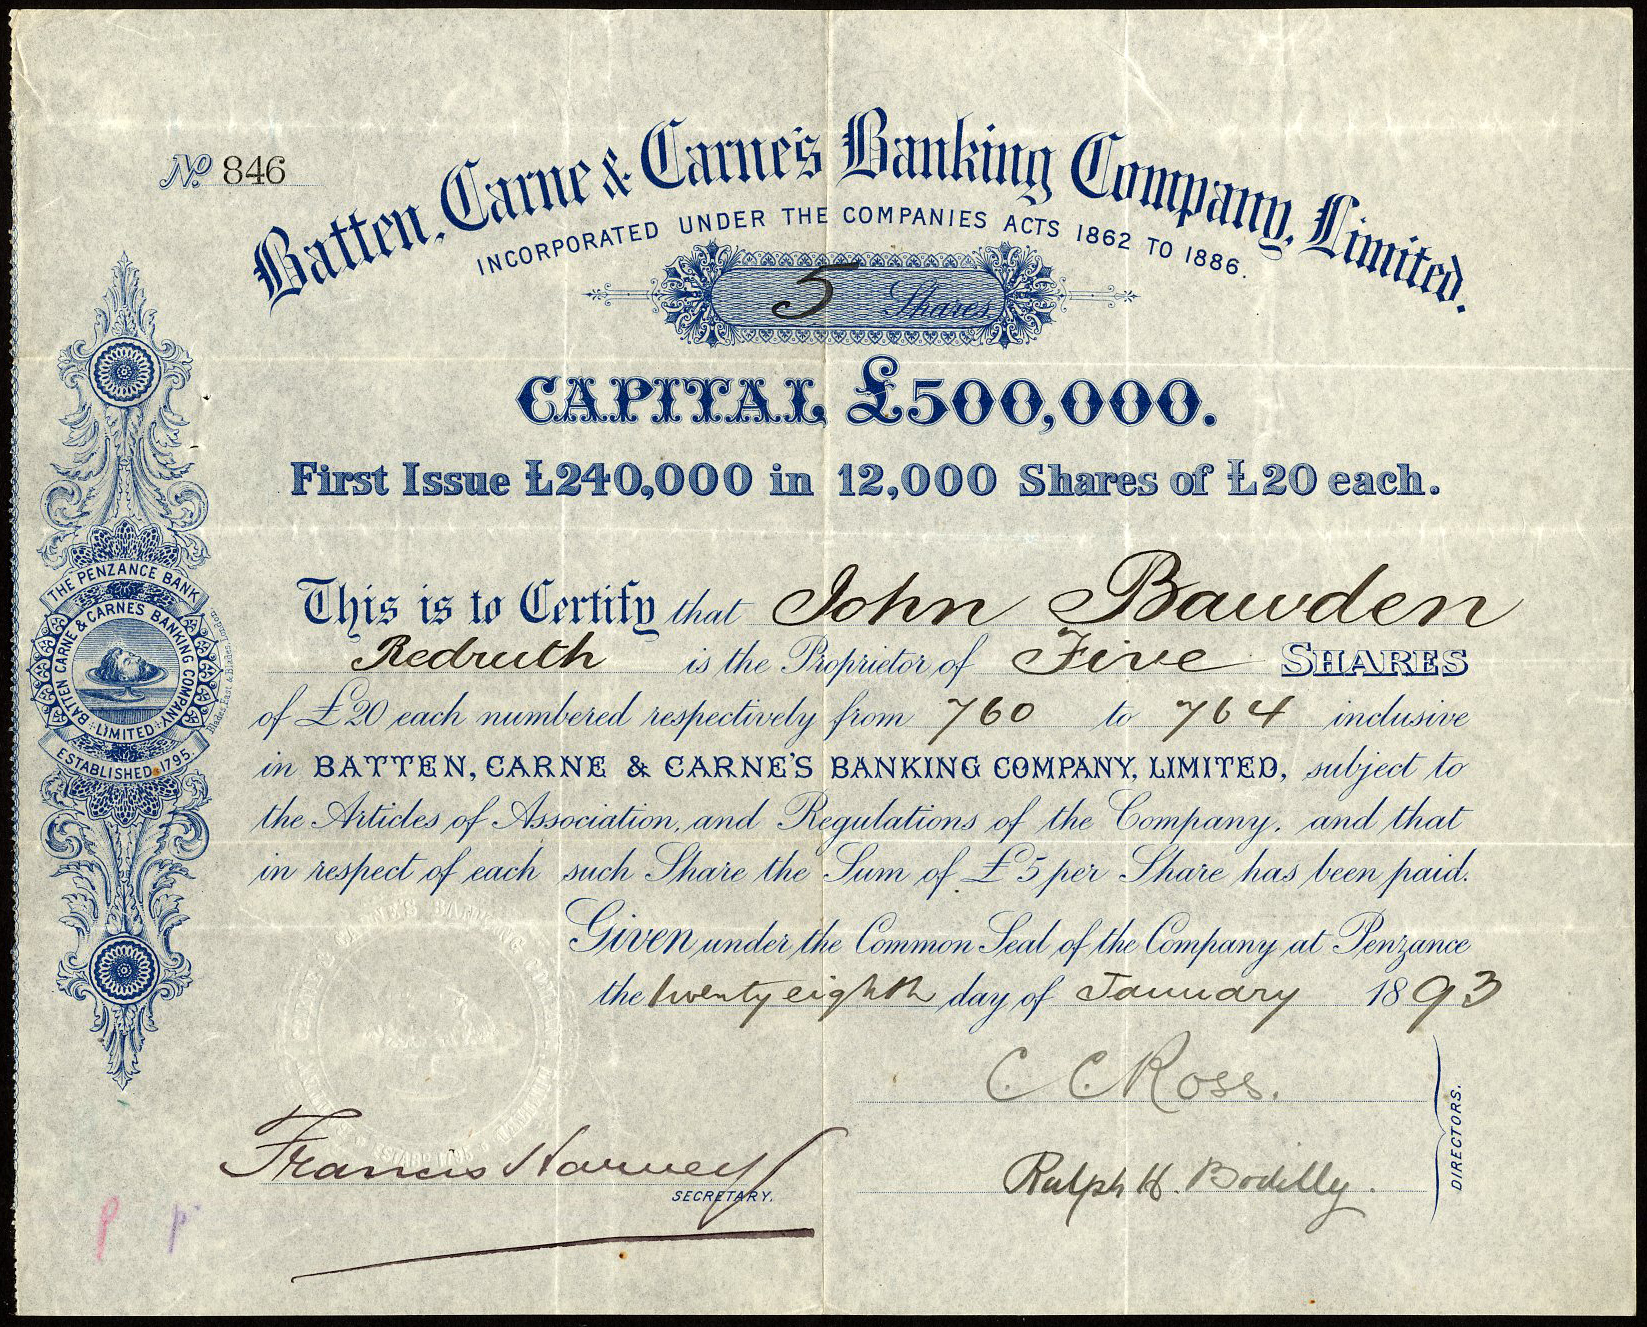 No. 846
Batten, Carne & Carne's Banking Company, Limited.
INCORPORATED UNDER THE COMPANIES ACTS 1862 TO 1886.
5 Shares.
CAPITAL £500,000.
First Issue £240,000 in 12,000 Shares of £20 each.
This is to Certify that John Bawden
Redruth is the Proprietor of Five SHARES
of £20 each numbered respectively from 760 to 764 inclusive
in BATTEN, CARNE & CARNE'S BANKING COMPANY, LIMITED, subject to
the Articles of Association, and Regulations of the Company, and that
in respect of each such Share the Sum of £5 per Share has been paid.
Given under the Common Seal of the Company at Penzance
the twenty eighth day of January 1893
C. C. Ross.
Ralph H. Bodilly.
DIRECTORS.
Francis Harvey
SECRETARY.
THE PENZANCE BANK
BATTEN CARNE & CARNE'S BANKING COMPANY
LIMITED
ESTABLISHED 1795.
Blades, East & Blades, London.
P P